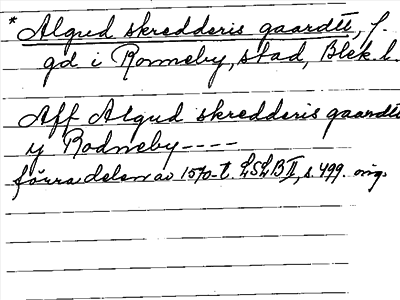 * Algud skredderis gaardtt, f.
gd i Ronneby, stad, Blek. l.
Aff Algud skredderis gaardtt
y Rodneby ----
förra delen av 1570-t. LSLB II, s. 499. orig.